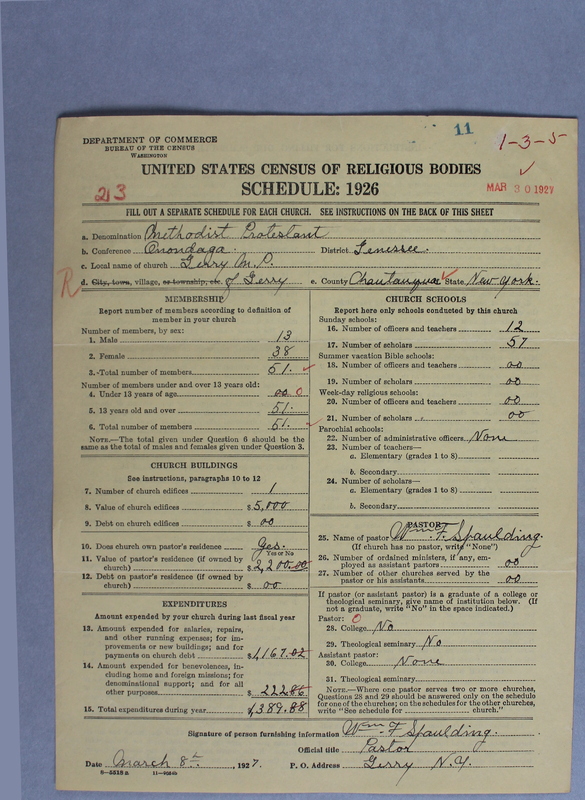 11
1-3-5
DEPARTMENT OF COMMERCE
BUREAU OF THE CENSUS
WASHINGTON
UNITED STATES CENSUS OF RELIGIOUS BODIES
SCHEDULE: 1926
213
MAR 30 1927
FILL OUT A SEPARATE SCHEDULE FOR EACH CHURCH. SEE INSTRUCTIONS ON THE BACK OF THIS SHEET
a. Denomination Methodist Protestant
b. Conference Onondaga. District Genessee.
c. Local name of church Gerry M.P.
R
d. City, town, village, or township, etc. of Gerry e. County Chautauqua State New York.
MEMBERSHIP
Report number of members according to definition of
member in your church
Number of members, by sex:
1. Male 13
2. Female 38
3. Total number of members 51.
Number of members under and over 13 years old:
4. Under 13 years of age 00 0
5. 13 years old and over 51.
6. Total number of members 51.
NOTE.—The total given under Question 6 should be the
same as the total of males and females given under Question 3.
CHURCH BUILDINGS
See instructions, paragraphs 10 to 12
7. Number of church edifices 1
8. Value of church edifices $ 5,000
9. Debt on church edifices $ 00
10. Does church own pastor's residence Yes.
Yes or No
11. Value of pastor's residence (if owned by
church) $ 2,200.00
12. Debt on pastor's residence (if owned by
church) $ 00
EXPENDITURES
Amount expended by your church during last fiscal year
13. Amount expended for salaries, repairs,
and other running expenses; for im-
provements or new buildings; and for
payments on church debt $ 1,167.02
14. Amount expended for benevolences, in-
cluding home and foreign missions; for
denominational support; and for all
other purposes $ 222.86
15. Total expenditures during year $ 1,389.88
CHURCH SCHOOLS
Report here only schools conducted by this church
Sunday schools:
16. Number of officers and teachers 12
17. Number of scholars 57
Summer vacation Bible schools:
18. Number of officers and teachers 00
19. Number of scholars 00
Week-day religious schools:
20. Number of officers and teachers 00
21. Number of scholars 00
Parochial schools:
22. Number of administrative officers None
23. Number of teachers—
a. Elementary (grades 1 to 8)
b. Secondary
24. Number of scholars—
a. Elementary (grades 1 to 8)
b. Secondary
PASTOR
25. Name of pastor Wm F. Spaulding.
(If church has no pastor, write "None")
26. Number of ordained ministers, if any, em-
ployed as assistant pastors 00
27. Number of other churches served by the
pastor or his assistants 00
If pastor (or assistant pastor) is a graduate of a college or
theological seminary, give name of institution below. (If
not a graduate, write "No" in the space indicated.)
Pastor: 0
28. College No
29. Theological seminary No
Assistant pastor:
30. College None
31. Theological seminary
NOTE.—Where one pastor serves two or more churches,
Questions 28 and 29 should be answered only on the schedule
for one of the churches; on the schedules for the other churches,
write "See schedule for church."
Signature of person furnishing information Wm F Spaulding.
Official title Pastor
Date March 8th, 1927. P. O. Address Gerry N.Y.